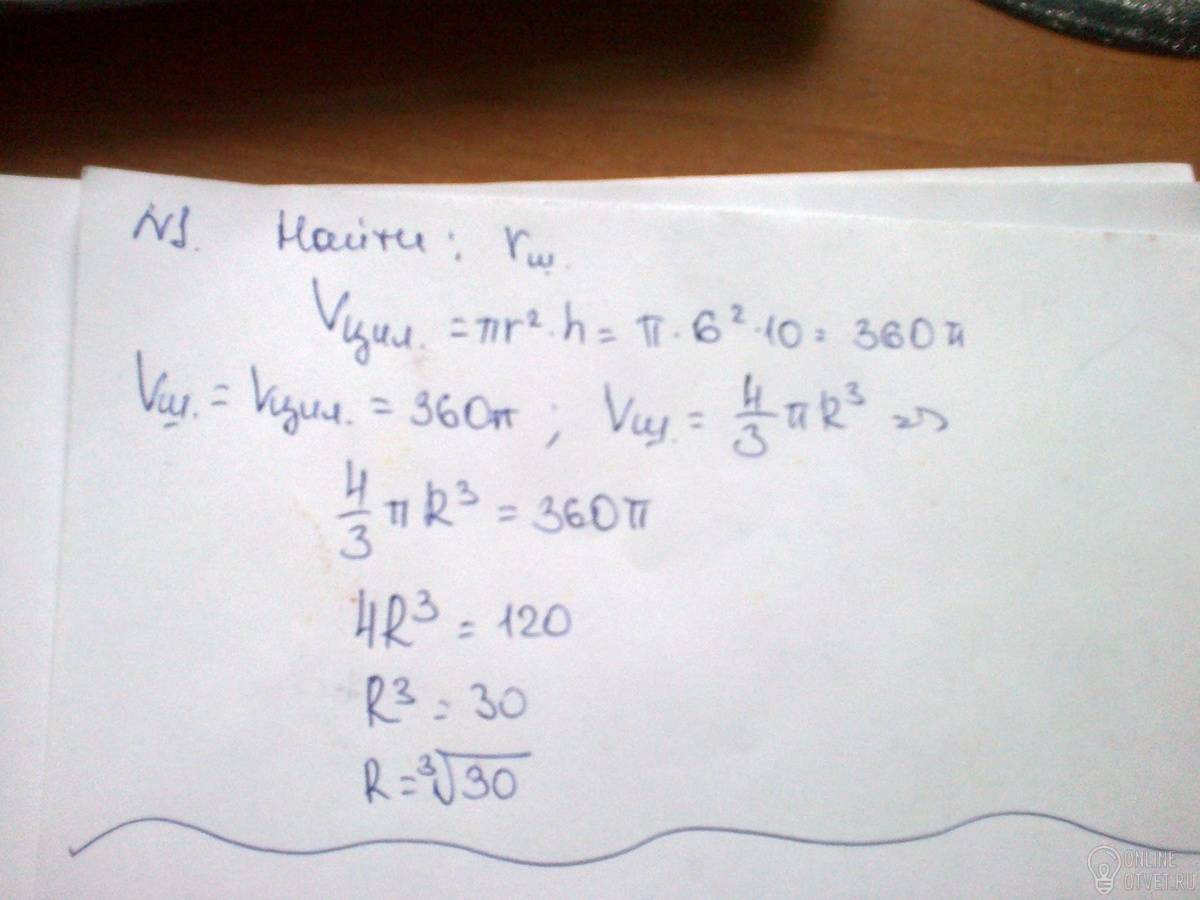 N1. Найти: rш.
Vцил. = πr²·h = π·6²·10 = 360π
Vш. = Vцил. = 360π ; Vш. = 4/3 πR³ =>
4/3 πR³ = 360π
4R³ = 120
R³ = 30
R = ³√30
ONLINE
OTVET.RU